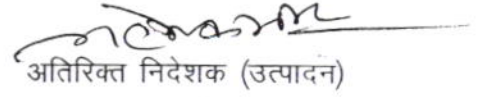 अतिरिक्त निदेशक (उत्पादन)